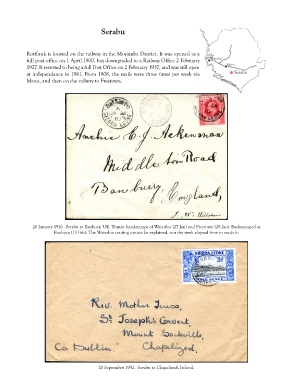 Serabu
Rotifunk is located on the railway in the Moyamba District. It was opened as a
full post office on 1 April 1900, but downgraded to a Railway Office 2 February
1927. It reverted to being a full Post Office on 2 February 1937, and was still open
at independence in 1961. From 1908, the mails were three times per week via
Mano, and then on the railway to Freetown.
Serabu
Archie C. J. Ackerman
Middleton Road
Banbury,
England,
26 January 1910 - Serabu to Banbury, UK. Transit handstamps of Waterloo (27 Jan) and Freetown (28 Jan). Backstamped at
Banbury (13 Feb). The Waterloo routing cannot be explained, nor the week elapsed time to reach it.
SIERRA LEONE
Rev. Mother Teresa,
St. Joseph's Convent,
Mount Sackville,
Co. Dublin Chapelizod,
22 September 1952 - Serabu to Chapelizod, Ireland.